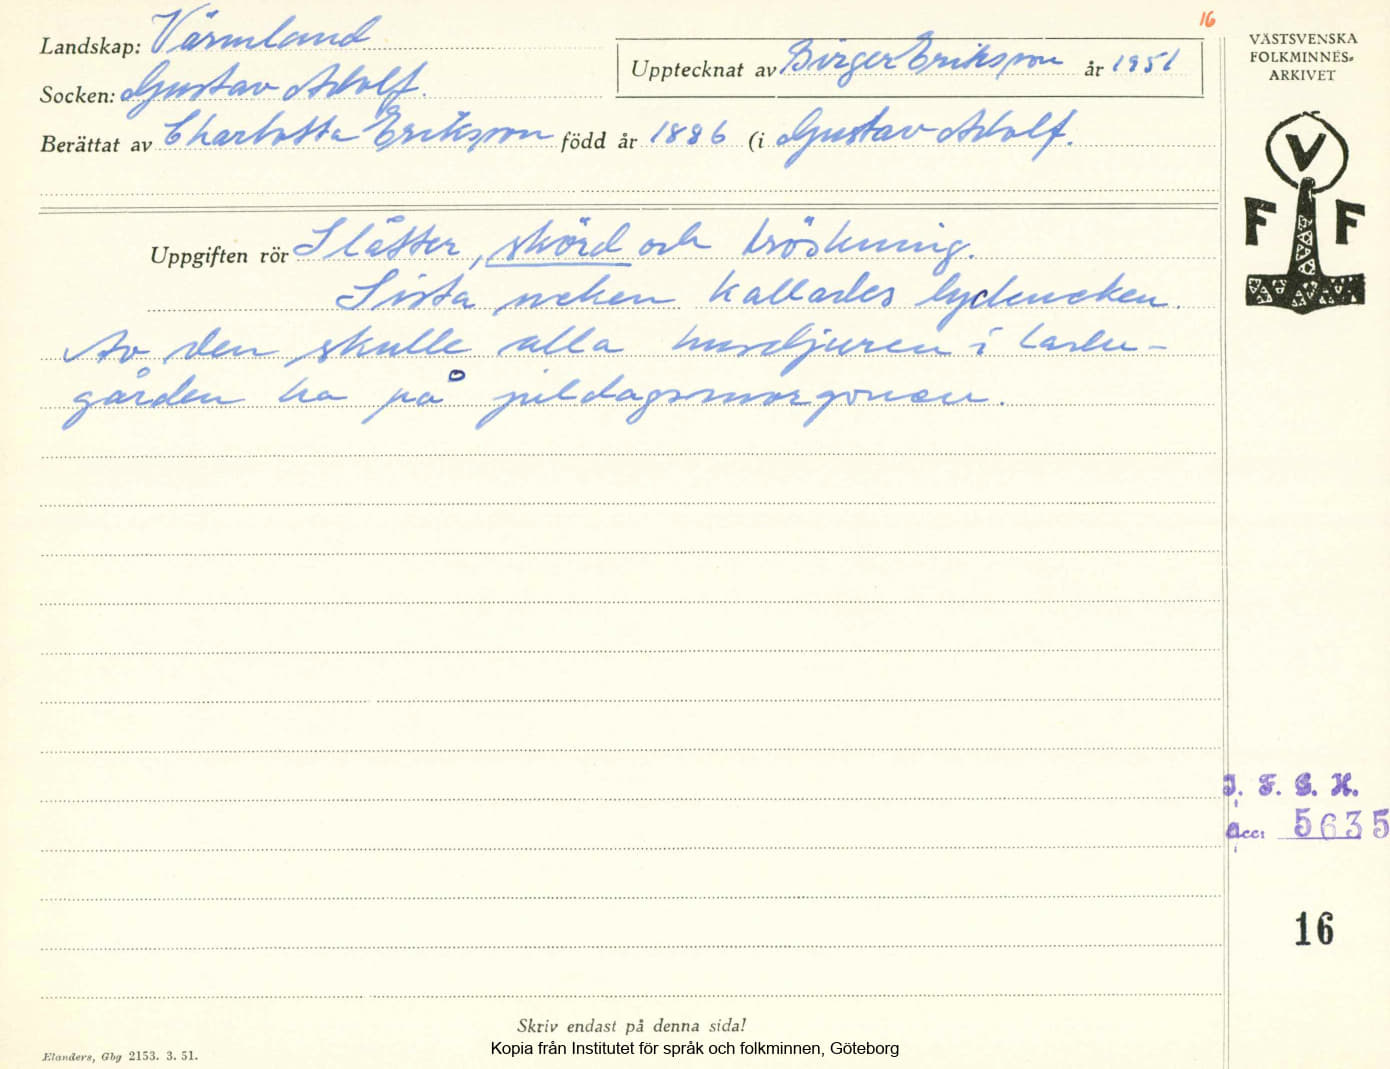 16
Landskap: Värmland
Socken: Gustav Adolf.
Upptecknat av Birger Eriksson år 1951
Berättat av Charlotta Eriksson född år 1886 (i Gustav Adolf.
VÄSTSVENSKA
FOLKMINNES-
ARKIVET
V
F F
Uppgiften rör Slåtter, skörd och tröskning.
Sista neken kallades lydeneken.
Av den skulle alla husdjuren i ladu-
gården ha på juldagsmorgonen.
I. F. G. H.
Acc: 5635
16
Skriv endast på denna sida!
Elanders, Gbg 2153. 3. 51.
Kopia från Institutet för språk och folkminnen, Göteborg